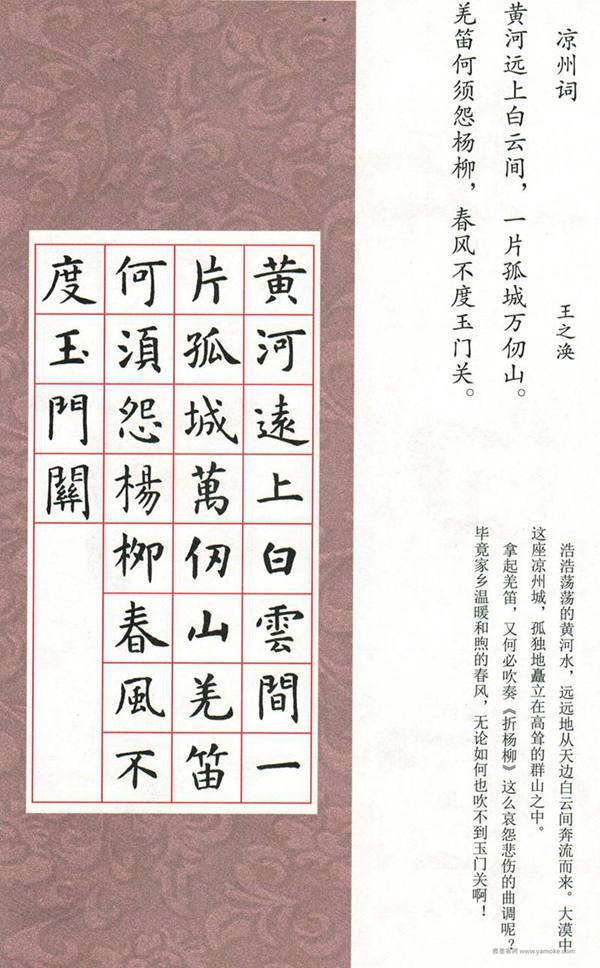 凉州词
王之涣
黄河远上白云间，一片孤城万仞山。
羌笛何须怨杨柳，春风不度玉门关。
浩浩荡荡的黄河水，远远地从天边白云间奔流而来。大漠中
这座凉州城，孤独地矗立在高耸的群山之中。
拿起羌笛，又何必吹奏《折杨柳》这么哀怨悲伤的曲调呢？
毕竟家乡温暖和煦的春风，无论如何也吹不到玉门关啊！
黄河遠上白雲間一
片孤城萬仞山羌笛
何須怨楊柳春風不
度玉門關
www.yamoke.com